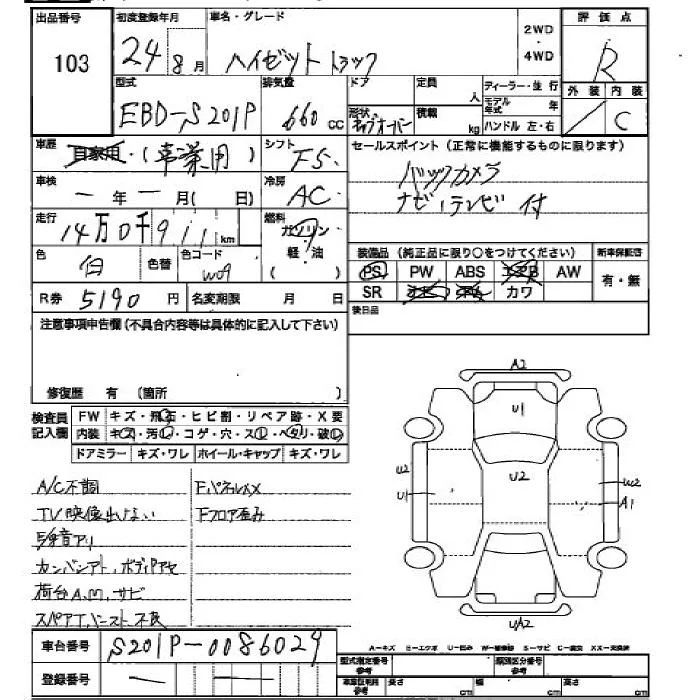 出品番号 初度登録年月 車名・グレード 評価点
103 24年8月 ハイゼットトラック 2WD・4WD R
型式 排気量 ドア 定員 ディーラー・並行 外装 内装
EBD-S201P 660cc 人 モデル年式 年 / C
形状 キャブオーバー 積載 kg ハンドル 左・右
車歴 自家用・(事業用) シフト F5 セールスポイント(正常に機能するものに限ります)
車検 ー年ー月(日) 冷房 AC バックカメラ
ナビ・テレビ付
走行 14万0千911km 燃料 ガソリン・軽・油
色 白 色替 色コード W09 装備品(純正品に限り○をつけてください) 新車保証書
PS PW ABS エアB AW 有・無
R券 5190円 名変期限 月 日 SR カワ
注意事項申告欄(不具合内容等は具体的に記入して下さい) 後日品
修復歴 有(箇所 )
検査員記入欄 FW キズ・飛石・ヒビ割・リペア跡・X要
内装 キズ・汚レ・コゲ・穴・スレ・ヘタリ・破レ
ドアミラー キズ・ワレ ホイール・キャップ キズ・ワレ
A/C不調 FパネルXX
TV映像出ない Fフロア歪み
異音アリ
カンバンアト、ボディアセ
荷台A.M.サビ
スペアT、ハーネスト不良
A2
U1
U2
U2
U1
UW2
A1
UA2
車台番号 S201P-0086029
A-キズ E-エクボ U-凹み W-補修跡 S-サビ C-腐食 XX-交換済
登録番号 ー ー 型式指定番号 参考 類別区分番号 参考
車庫証明用 参考 長さ cm 幅 cm 高さ cm